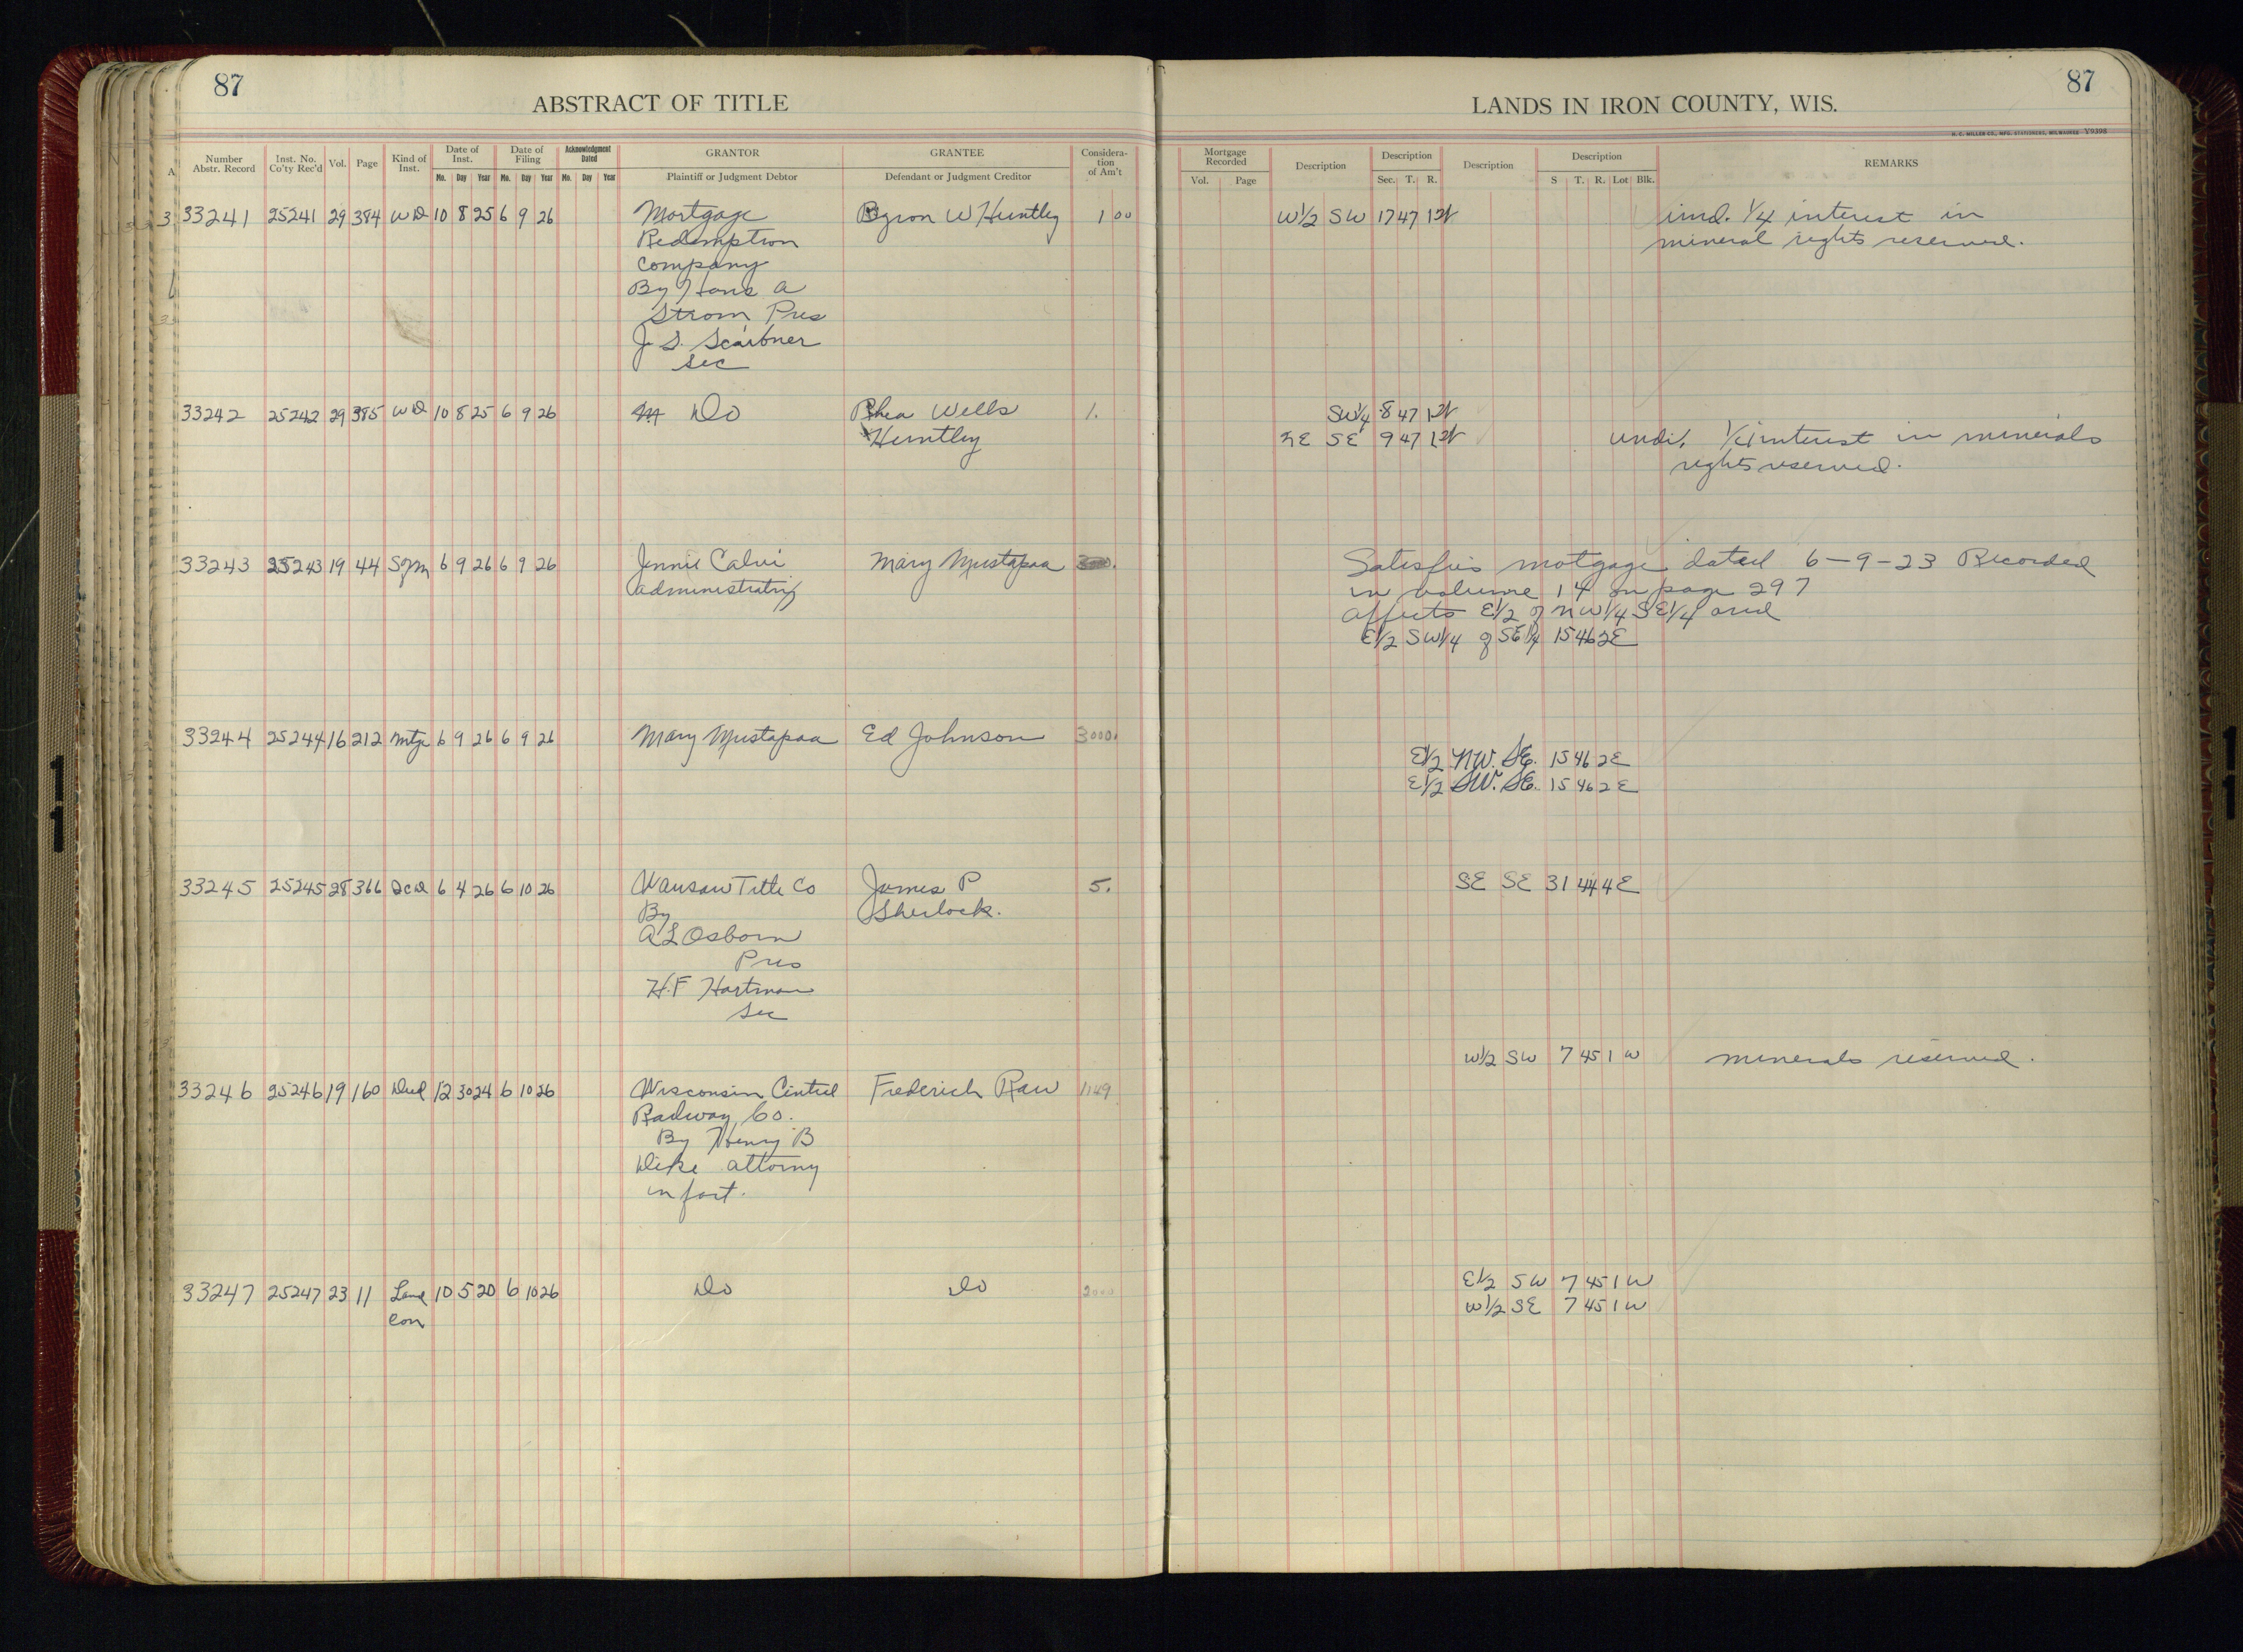 87
87
ABSTRACT OF TITLE
LANDS IN IRON COUNTY, WIS.
H. C. MILLER CO., MFG. STATIONERS, MILWAUKEE Y9398
Number Abstr. Record | Inst. No. Co'ty Rec'd | Vol. | Page | Kind of Inst. | Date of Inst. Mo. Day Year | Date of Filing Mo. Day Year | Acknowledgment Dated Mo. Day Year | GRANTOR Plaintiff or Judgment Debtor | GRANTEE Defendant or Judgment Creditor | Considera-tion of Am't | Mortgage Recorded Vol. Page | Description | Description Sec. T. R. | Description | Description S T. R. Lot Blk. | REMARKS
33241 25241 29 384 WD 10 8 25 6 9 26 Mortgage Byron W Huntley 1 00 W1/2 SW 17 47 1W und. 1/4 interest in
Redemption mineral rights reserved.
Company
By Hans A
Strom, Pres
J. S. Scribner
Sec
33242 25242 29 385 WD 10 8 25 6 9 26 Do Rhea Wells 1. SW1/4 8 47 1W
Huntley NE SE 9 47 1W undi. 1/4 interest in minerals
rights reserved.
33243 25243 19 44 6 9 26 6 9 26 Jennie Calvi Mary Mustapaa Satisfies motgage dated 6-9-23 Recorded
administratrix in volume 14 on page 297
affects E1/2 of NW1/4 SE1/4 and
E1/2 SW1/4 of SE1/4 15 46 2E
33244 25244 16 212 Mtge 6 9 26 6 9 26 Mary Mustapaa Ed Johnson 3000.
E1/2 NW. SE. 15 46 2E
E1/2 SW. SE. 15 46 2E
33245 25245 28 366 QCD 6 4 26 6 10 26 Wausau Title Co James P 5. SE SE 31 44 4E
By Sherlock.
A L Osborn
Pres
H.F Hartman
Sec
W1/2 SW 7 45 1W minerals reserved.
33246 25246 19 160 Deed 12 30 24 6 10 26 Wisconsin Central Frederich Rau 1149
Railway Co.
By Henry B
Dike attorny
in fact.
33247 25247 23 11 Land 10 5 20 6 10 26 Do Do 2000 E1/2 SW 7 45 1W
Con W1/2 SE 7 45 1W